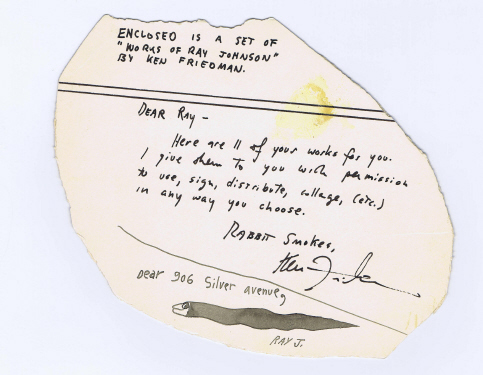 ENCLOSED IS A SET OF
"WORKS OF RAY JOHNSON"
BY KEN FRIEDMAN.
DEAR RAY -
Here are 11 of your works for you.
I give them to you with permission
to use, sign, distribute, collage, (etc.)
in any way you choose.
RABBIT Smokes,
Dear 906 Silver avenue,
RAY J.